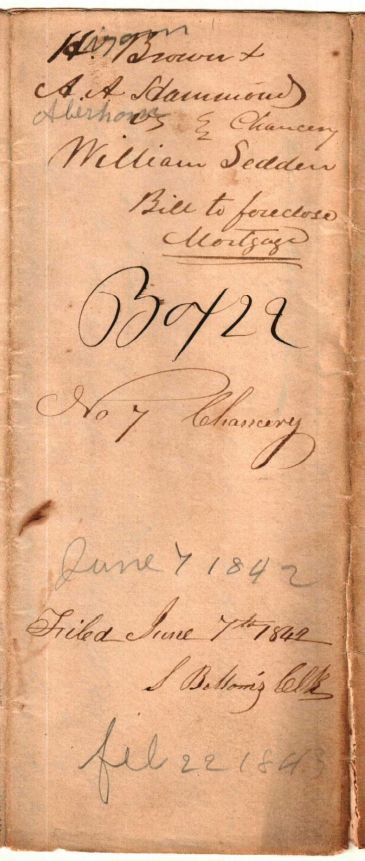 Hiram
H. Brown &
A A Hammond
vs } Chancery
William Sedden
Bill to foreclose
Mortgage
Box 22
No 7 Chancery
June 7 1842
Filed June 7th 1842
S Clk
feb 22 1843